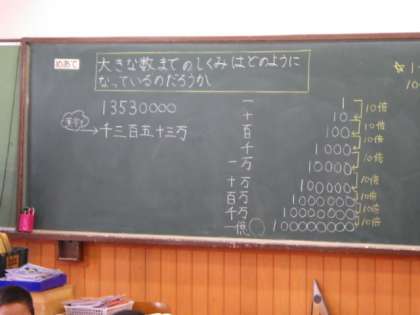 めあて
大きな数までのしくみはどのように
なっているのだろうか
13530000
漢字
千三百五十三万
一 1
十 10
百 100
千 1000
一万 10000
十万 100000
百万 1000000
千万 10000000
一億 100000000
10倍
10倍
10倍
10倍
10倍
10倍
10倍
10倍